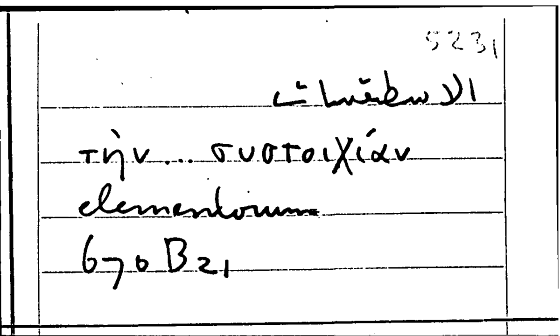 5231
الاسطقسات
τὴν... συστοιχίαν
elementorum
670 B21